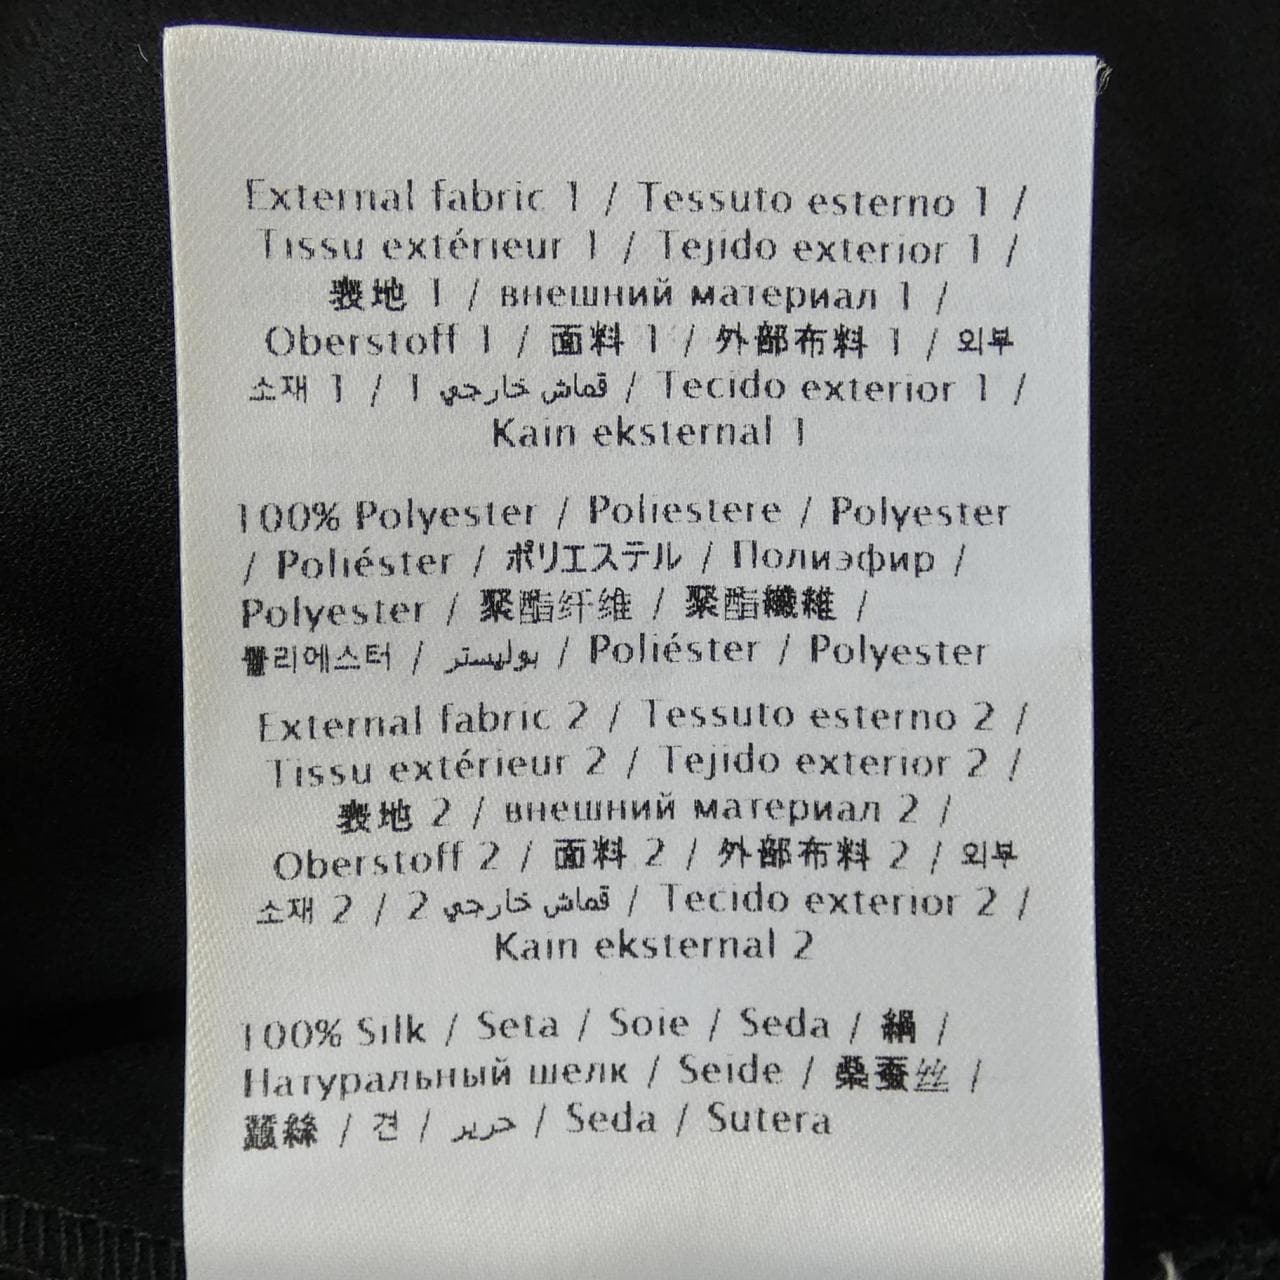 External fabric 1 / Tessuto esterno 1 /
Tissu extérieur 1 / Tejido exterior 1 /
表地 1 / внешний материал 1 /
Oberstoff 1 / 面料 1 / 外部布料 1 / 외부
소재 1 / قماش خارجي 1 / Tecido exterior 1 /
Kain eksternal 1
100% Polyester / Poliestere / Polyester
/ Poliéster / ポリエステル / Полиэфир /
Polyester / 聚酯纤维 / 聚酯纖維 /
폴리에스터 / بوليستر / Poliéster / Polyester
External fabric 2 / Tessuto esterno 2 /
Tissu extérieur 2 / Tejido exterior 2 /
表地 2 / внешний материал 2 /
Oberstoff 2 / 面料 2 / 外部布料 2 / 외부
소재 2 / قماش خارجي 2 / Tecido exterior 2 /
Kain eksternal 2
100% Silk / Seta / Soie / Seda / 絹 /
Натуральный шелк / Seide / 桑蚕丝 /
蠶絲 / 견 / حرير / Seda / Sutera